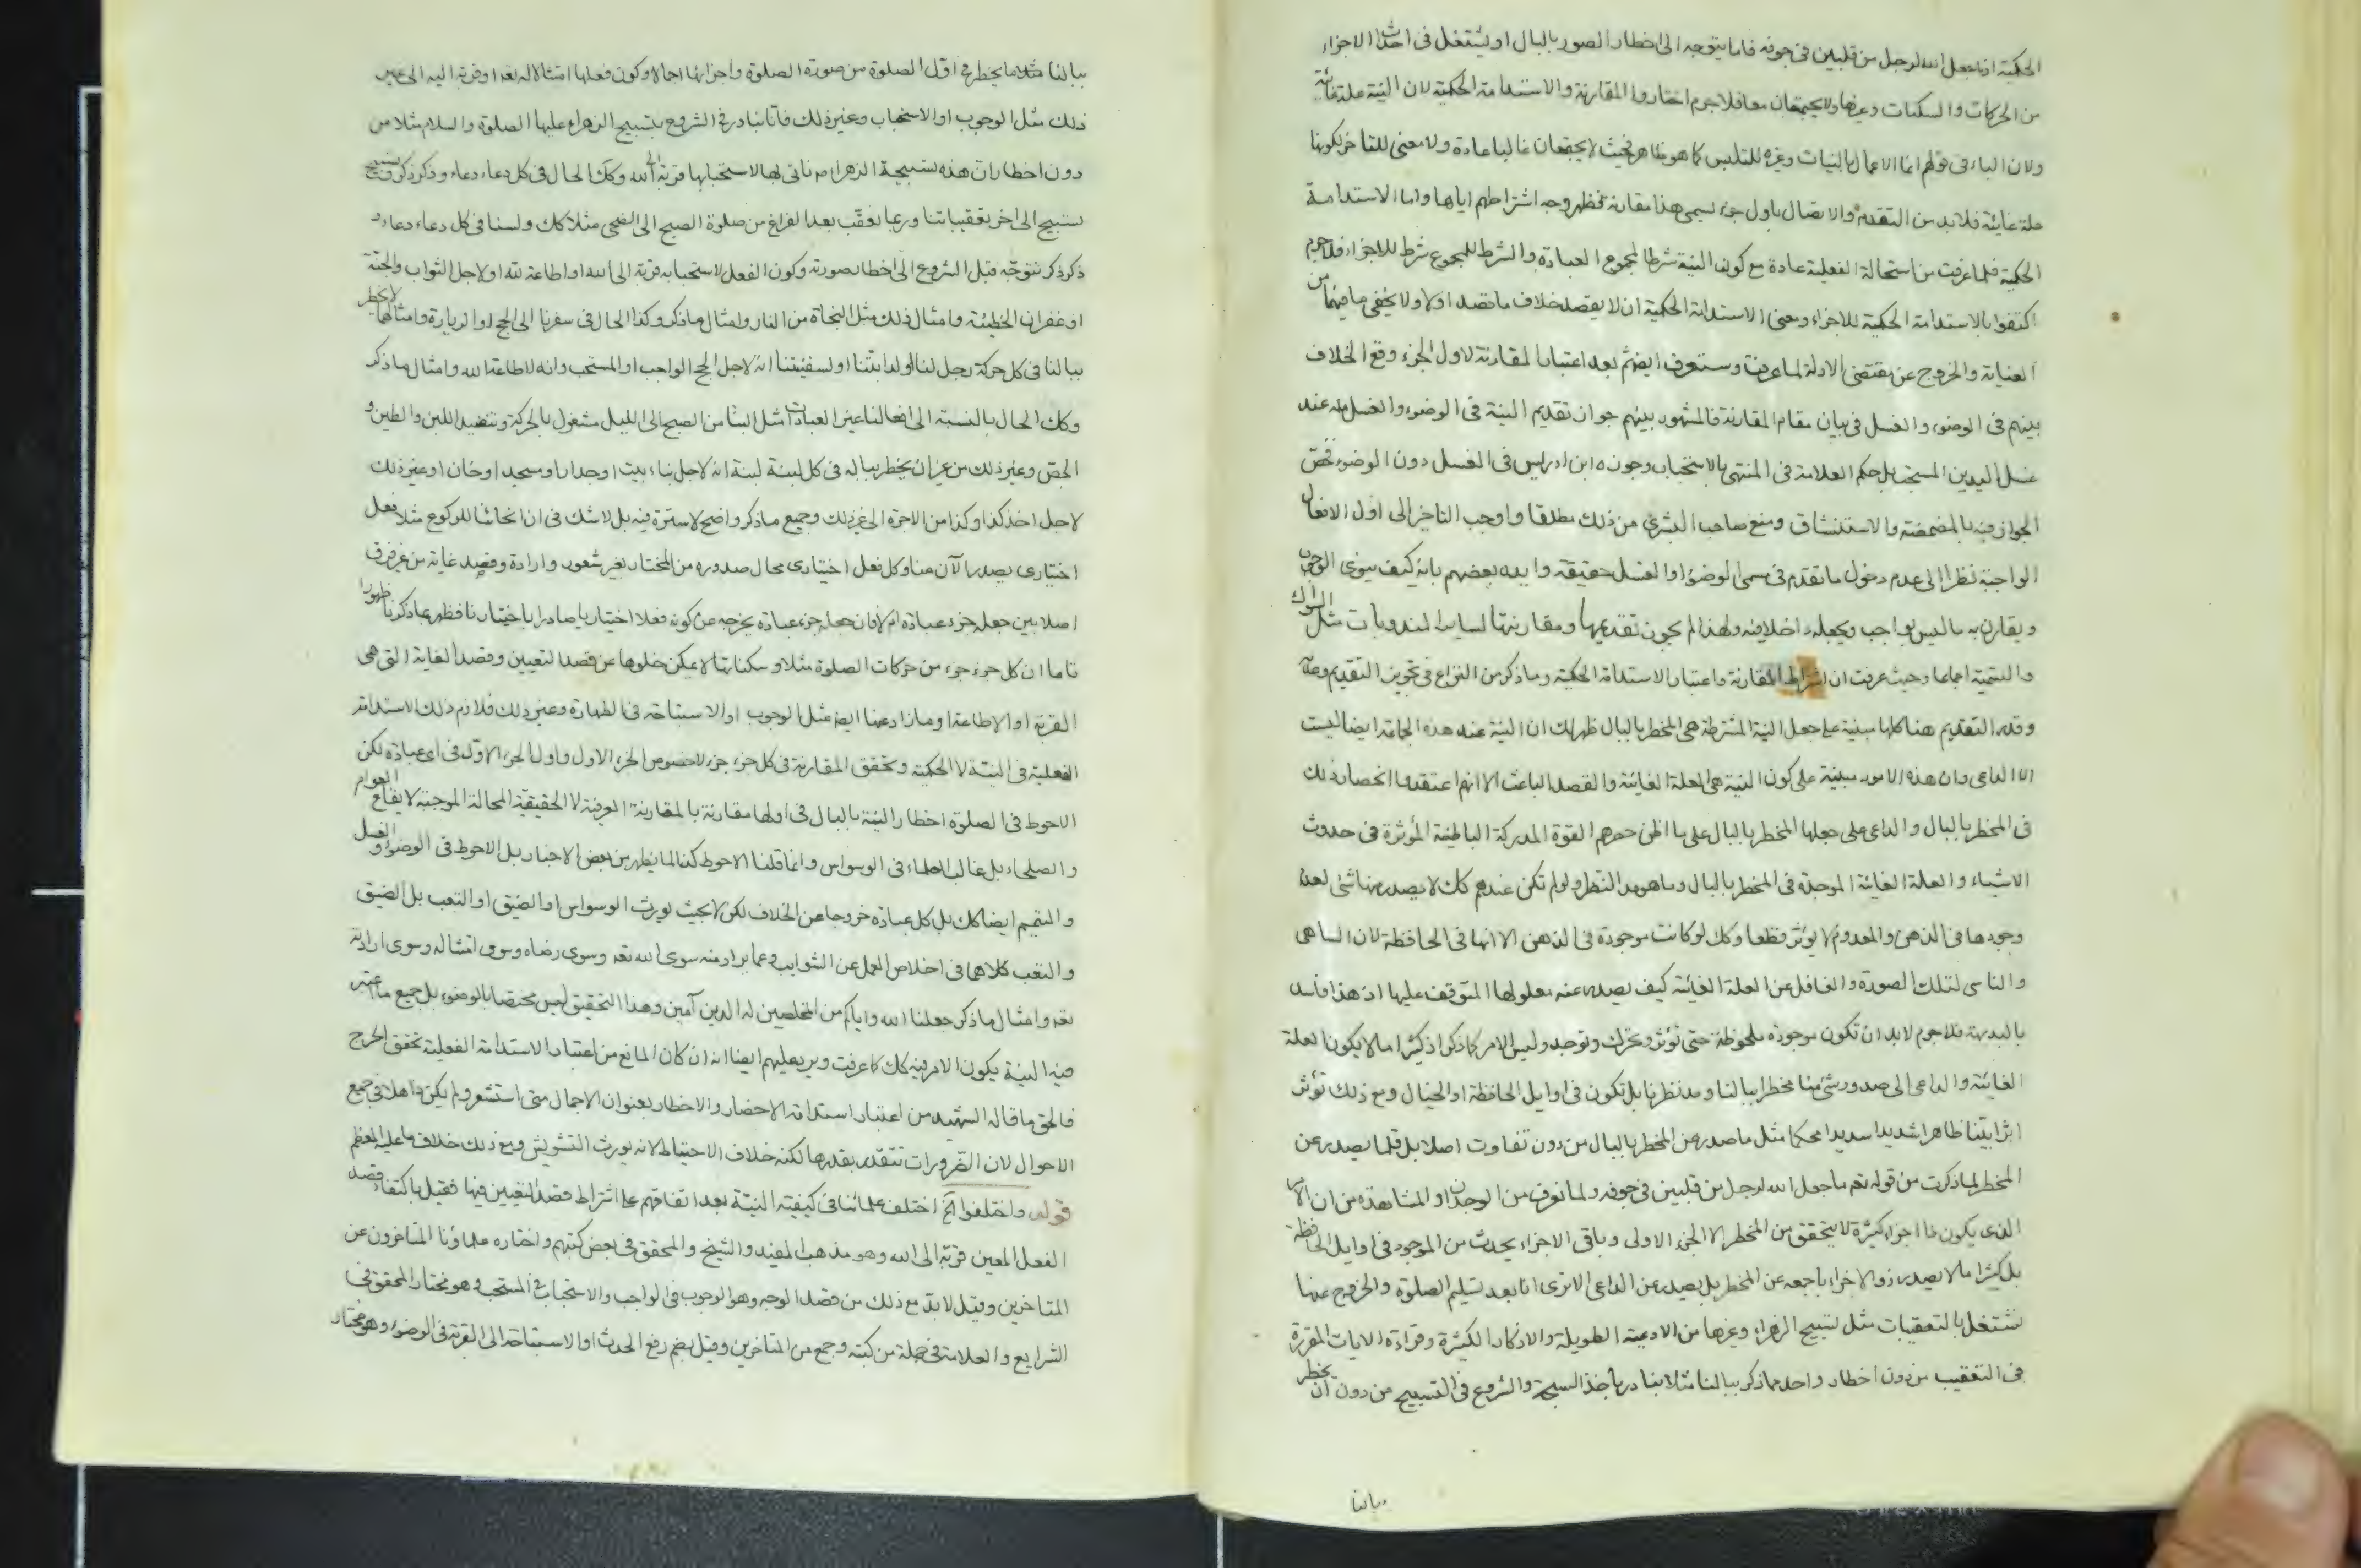 الحكمية اذ ما جعل الله لرجل من قلبين في جوفه فاما يتوجه الى اخطار الصور بالبال او يشتغل في احداث الاجزاء
من الحركات والسكنات وغيرها ولا يجتمعان معا فلا جرم اختاروا المقارنة والاستدامة الحكمية لان النية علة غائية
ولان الباء في قولهم انما الاعمال بالنيات وغيره للتلبس كما هو ظاهر فحيث لا يجتمعان غالبا عادة ولا معنى للتاخر لكونها
علة غائية فلا بد من التقدم والاتصال باول جزء ليسمى هذا مقارنة فظهر وجه اشتراطهم اياها واما الاستدامة
الحكمية فلما عرفت من استحالة الفعلية عادة مع كون النية شرطا لمجموع العبادة والشرط للمجموع شرط للاجزاء فلا جرم
اكتفوا بالاستدامة الحكمية للاجزاء ومعنى الاستدامة الحكمية ان لا يقصد خلاف ما قصد اولا ولا يخفى ما فيهما من
العناية والخروج عن مقتضى الادلة لما عرفت وستعرف ايضا ثم بعد اعتبار المقارنة لاول الجزء وقع الخلاف
بينهم في الوضوء والغسل في بيان مقام المقارنة فالمشهور بينهم جواز تقديم النية في الوضوء والغسل عند
غسل اليدين المستحب بل حكم العلامة في المنتهى بالاستحباب وجوزه ابن ادريس في الغسل دون الوضوء فخص
الجواز فيه بالمضمضة والاستنشاق ومنع صاحب البشرى من ذلك مطلقا واوجب التاخر الى اول الافعال
الواجبة نظرا الى عدم دخول ما تقدم في مسمى الوضوء او الغسل حقيقة وايده بعضهم بانه كيف ينوى الوجوب
ويقارن به ما ليس بواجب ويجعله داخلا فيه ولهذا لم يجوز تقديمها ومقارنتها لسائر المندوبات مثل السواك
والتسمية اجماعا وحيث عرفت ان اشتراط المقارنة واعتبار الاستدامة الحكمية وما ذكر من النزاع في تجويز التقديم وعدمه
وقدر التقديم هنا كلها مبنية على جعل النية المشترطة هي المخطر بالبال ظهر لك ان النية عند هذه الجماعة ايضا ليست
الا الداعي وان هذه الامور مبنية على كون النية هي العلة الغائية والقصد الباعث الا انهم اعتقدوا انحصار ذلك
في المخطر بالبال والداعي على جعلها المخطر بالبال على ما اظن حصرهم القوة المدركة الباطنية المؤثرة في حدوث
الاشياء والعلة الغائية الموجدة في المخطر بالبال وما هو مد النظر ولو لم تكن عندهم كك لا يصدر منها شئ لعدم
وجودها في الذهن والمعدوم لا يؤثر قطعا وكك لو كانت موجودة في الذهن الا انها في الحافظة لان الساهي
والناسي لتلك الصورة والغافل عن العلة الغائية كيف يصدر عنه معلولها المتوقف عليها اذ هذا فاسد
بالبديهة فلا جرم لابد ان تكون موجودة ملحوظة حتى تؤثر وتحرك وتوجد وليس الامر كما ذكر اذ كثيرا ما لا يكون العلة
الغائية والداعي الى صدور شئ منا مخطرا ببالنا ومد نظرنا بل تكون في اوايل الحافظة او الخيال ومع ذلك تؤثر
اثرا بينا ظاهرا شديدا سديدا محكما مثل ما صدر عن المخطر بالبال من دون تفاوت اصلا بل قلما يصدر عن
المخطر لما ذكرت من قوله تعم ما جعل الله لرجل من قلبين في جوفه ولما نعرف من الوجدان والمشاهدة من ان الامر
الذي يكون له اجزاء كثيرة لا يتحقق من المخطر الا الجزء الاولى وباقي الاجزاء يحدث من الموجود في اوايل الحافظة
بل كثيرا ما لا يصدر ذو الاجزاء باجمعه عن المخطر بل يصدر عن الداعي الا ترى انا بعد تسليم الصلوة والخروج عنها
نشتغل بالتعقيبات مثل تسبيح الزهراء وغيرها من الادعية الطويلة والاذكار الكثيرة وقراءة الايات المقررة
في التعقيب من دون اخطار واحد مما ذكر ببالنا مثلا نبادر باخذ السبحة والشروع في التسبيح من دون ان يخطر
ببالنا
ببالنا مثل ما يخطر في اول الصلوة من صورة الصلوة واجزائها اجمالا وكون فعلها امتثالا له تعم او قربة اليه الى غير
ذلك مثل الوجوب او الاستحباب وغير ذلك فانا نبادر في الشروع بتسبيح الزهراء عليها الصلوة والسلام مثلا من
دون اخطار ان هذه تسبيحة الزهراء ناتي بها لاستحبابها قربة الى الله وكك الحال في كل دعاء دعاء وذكر ذكر وتسبيح
تسبيح الى اخر تعقيباتنا وربما نعقب بعد الفراغ من صلوة الصبح الى الضحى مثلا كك ولسنا في كل دعاء دعاء و
ذكر ذكر نتوجه قبل الشروع الى اخطار صورته وكون الفعل لاستحبابه قربة الى الله او اطاعة لله او لاجل الثواب والجنة
او غفران الخطيئة وامثال ذلك مثل النجاة من النار وامثال ما ذكر وكذا الحال في سفرنا الى الحج او الزيارة وامثالهما لا يخطر
ببالنا في كل حركة رجل لنا او لدابتنا او لسفينتنا انه لاجل الحج الواجب او المستحب وانه لاطاعة الله وامثال ما ذكر
وكك الحال بالنسبة الى افعالنا غير العبادات مثل البناء من الصبح الى الليل مشغول بالحركة وتنضيد اللبن والطين و
الجص وغير ذلك من غير ان يخطر بباله في كل لبنة لبنة انه لاجل بناء بيت او جدار او مسجد او خان او غير ذلك
لاجل اخذ كذا وكذا من الاجرة الى غير ذلك وجميع ما ذكر واضح لا سترة فيه بل لا شك في ان انحنائنا للركوع مثلا فعل
اختياري يصدر الآن منا وكل فعل اختياري محال صدوره من المختار بغير شعور وارادة وقصد غاية من غير فرق
اصلا بين جعله جزء عبادة ام لا فان جعله جزء عبادة لا يخرجه عن كونه فعلا اختياريا صادرا باختيارنا فظهر مما ذكرنا ظهورا
تاما ان كل جزء جزء من حركات الصلوة مثلا وسكناتها لا يمكن خلوها عن قصد التعيين وقصد الغاية التي هي
القربة او الاطاعة او ما زاد عنها ايضا مثل الوجوب او الاستباحة في الطهارة وغير ذلك فلازم ذلك الاستدامة
الفعلية في النية لا الحكمية وتحقق المقارنة في كل جزء جزء لا خصوص الجزء الاول واول الجزء الاول في اي عبادة لكن
الاحوط في الصلوة اخطار النية بالبال في اولها مقارنة بالمقارنة العرفية لا الحقيقية المحالة الموجبة لايقاع العوام
والصلحاء بل غالب العلماء في الوسواس وانما قلنا الاحوط كذا لما يظهر من بعض الاخبار بل الاحوط في الوضوء والغسل
والتيمم ايضا كك بل كل عبادة خروجا عن الخلاف لكن لا بحيث يورث الوسواس او الضيق او التعب بل الضيق
والتعب كلاهما في اخلاص العمل عن الشوايب وعما يراد منه سوى الله تعم وسوى رضاه وسوى امتثاله وسوى ارادته
تعم وامثال ما ذكر جعلنا الله واياكم من المخلصين له الدين آمين وهذا التحقيق ليس مختصا بالوضوء بل جميع ما اعتبر
فيه النية يكون الامر فيه كك كما عرفت ويرد عليهم ايضا انه ان كان المانع من اعتبار الاستدامة الفعلية تحقق الحرج
فالحق ما قاله الشهيد من اعتبار استدامة الاحضار والاخطار بعنوان الاجمال متى استشعر ولم يكن ذاهلا في جميع
الاحوال لان الضرورات تتقدر بقدرها لكنه خلاف الاحتياط لانه يورث التشويش ومع ذلك خلاف ما عليه المعظم
قوله واختلفوا الخ اختلف علمائنا في كيفية النية بعد اتفاقهم على اشتراط قصد التعيين فيها فقيل باكتفاء قصد
الفعل المعين قربة الى الله وهو مذهب المفيد والشيخ والمحقق في بعض كتبهم واختاره علماؤنا المتاخرون عن
المتاخرين وقيل لا بد مع ذلك من قصد الوجه وهو الوجوب في الواجب والاستحباب في المستحب وهو مختار المحقق في
الشرايع والعلامة في جملة من كتبه وجمع من المتاخرين وقيل بضم رفع الحدث او الاستباحة الى القربة في الوضوء وهو مختار